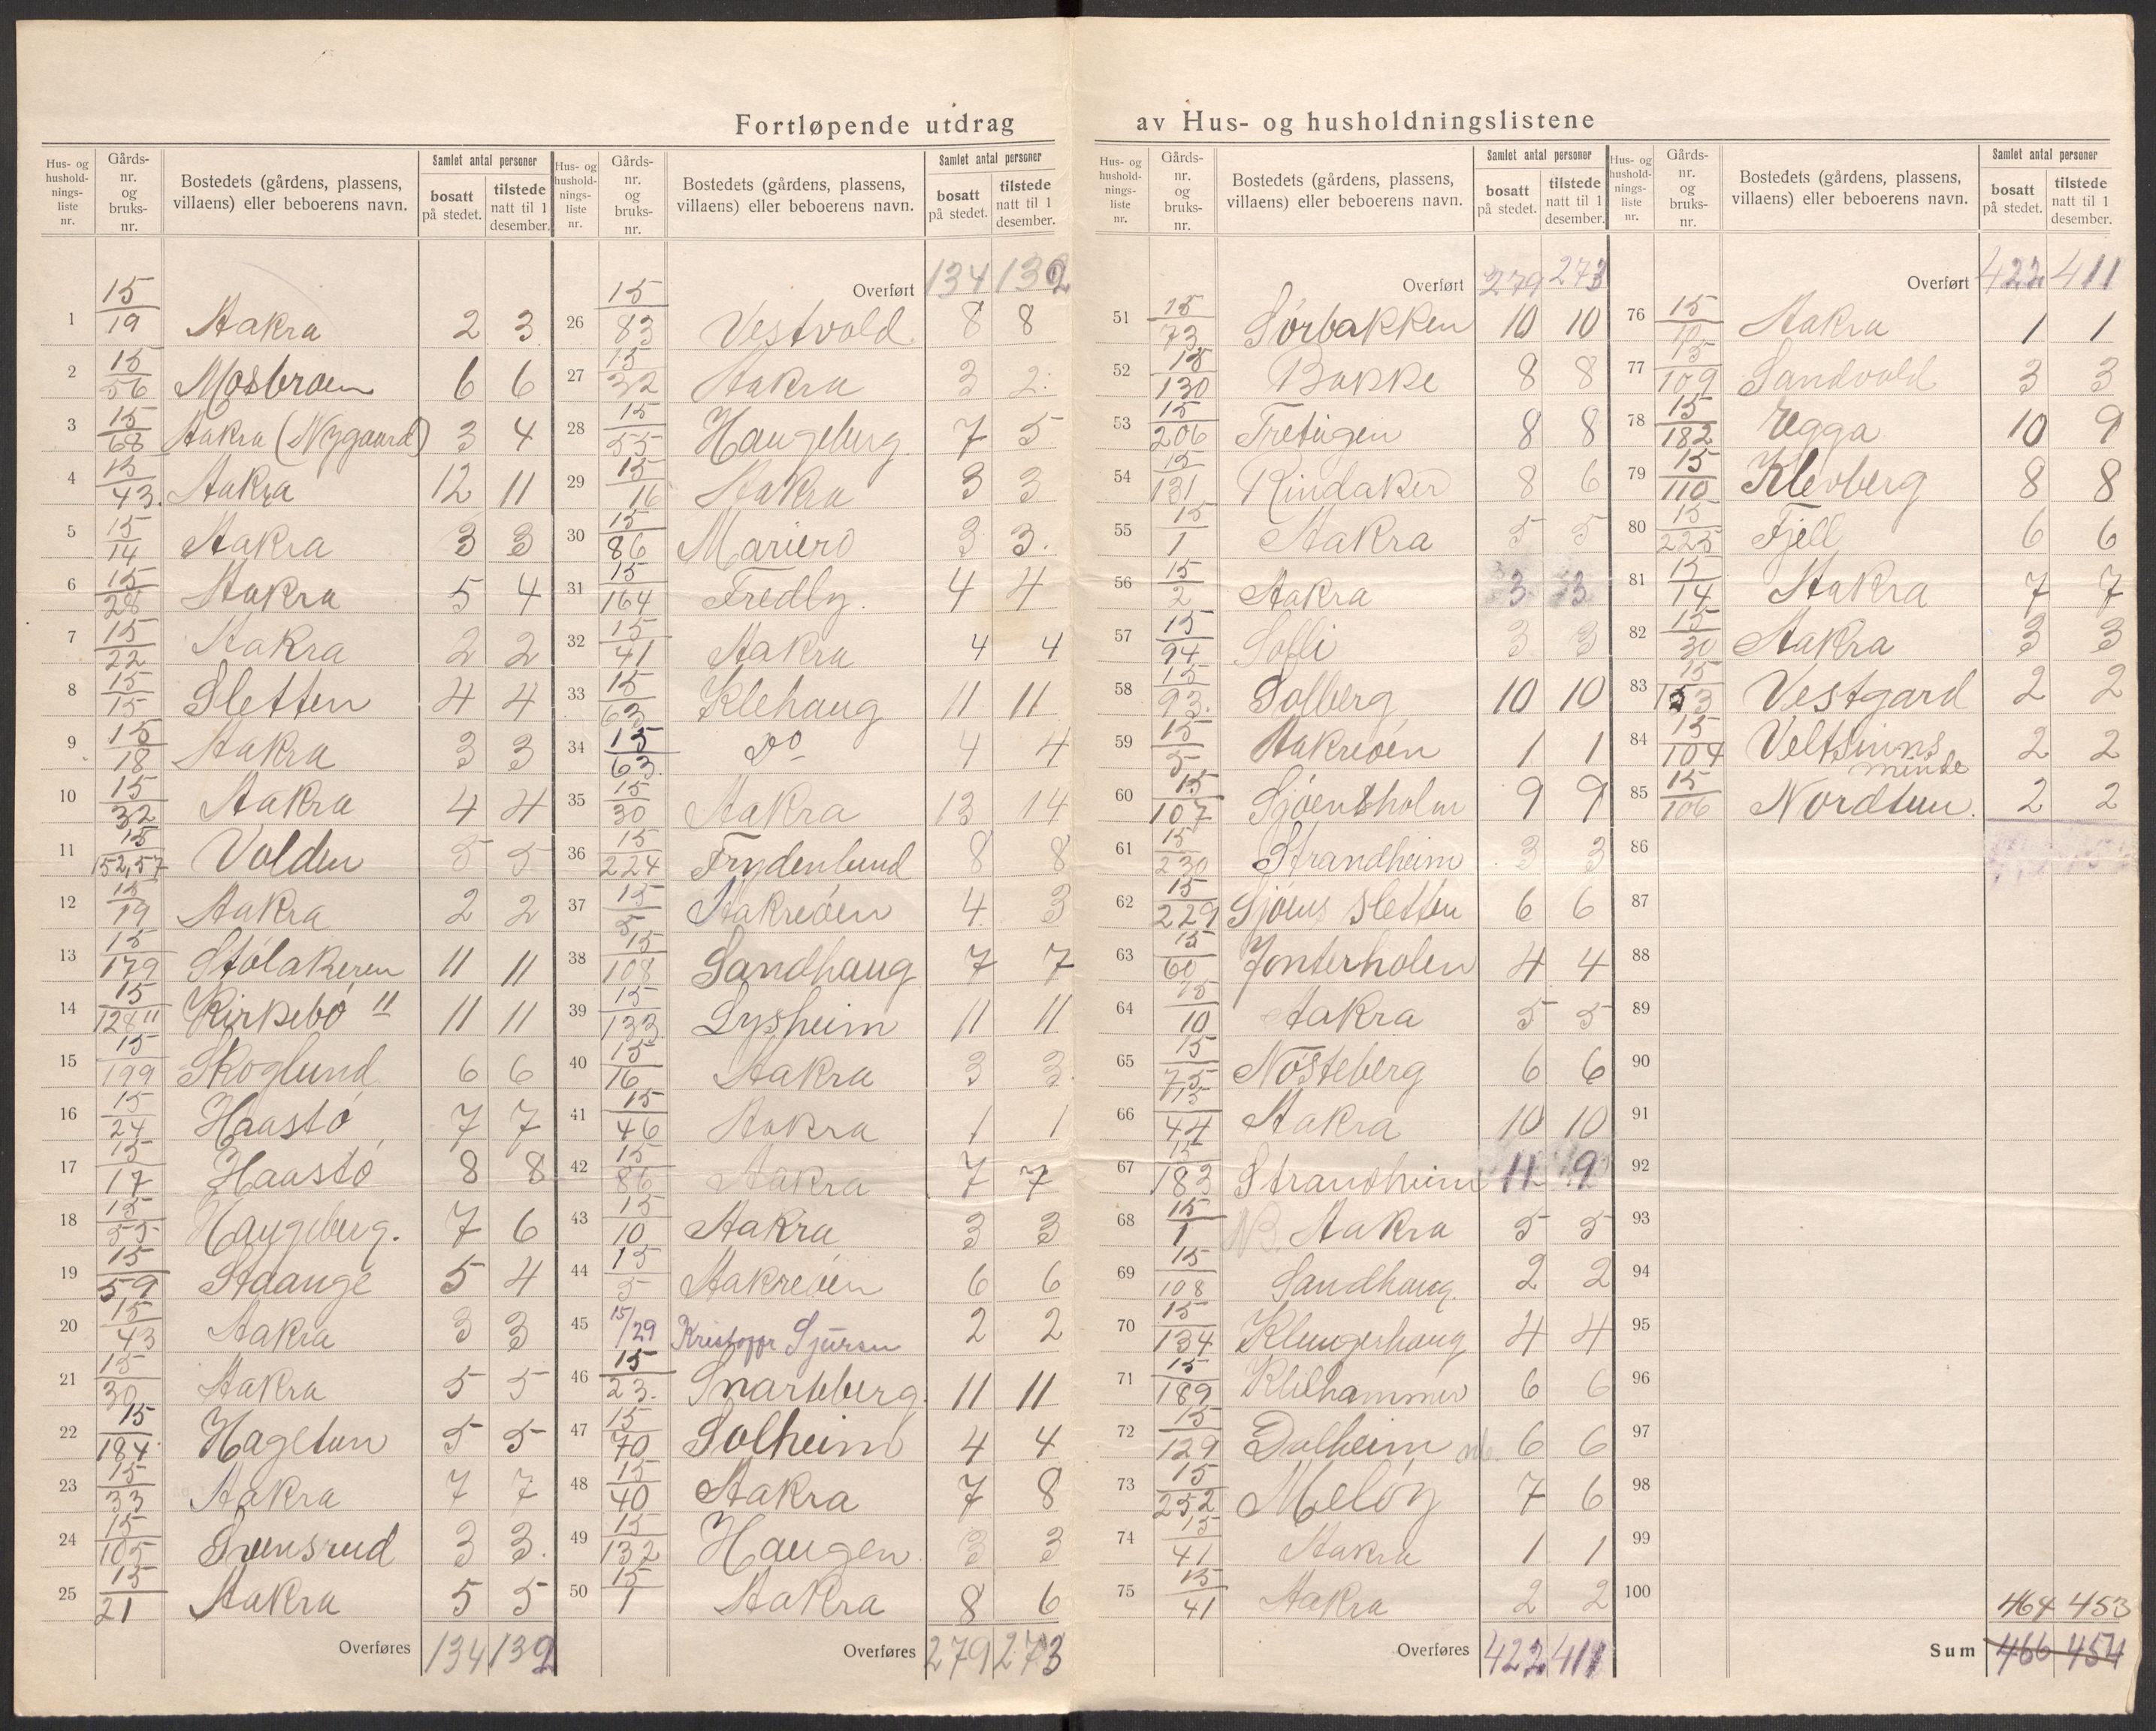 Fortløpende utdrag av Hus- og husholdningslistene
Hus- og husholdnings-liste nr. | Gårds-nr. og bruks-nr. | Bostedets (gårdens, plassens, villaens) eller beboerens navn. | Samlet antal personer | bosatt på stedet. | tilstede natt til 1 desember.
1 15/19 Aakra 2 3
2 15/56 Mosbroen 6 6
3 15/68 Aakra (Nygaard) 3 4
4 15/43. Aakra 12 11
5 15/14 Aakra 3 3
6 15/28 Aakra 5 4
7 15/22 Aakra 2 2
8 15/15 Sletten 4 4
9 15/18 Aakra 3 3
10 15/32 Aakra 4 4
11 15/152,57 Volden 5 5
12 15/19 Aakra 2 2
13 15/179 Stølakeren 11 11
14 15/128 " Kirkebø " 11 11
15 15/199 Skoglund 6 6
16 15/24 Haastø 7 7
17 15/17 Haastø 8 8
18 15/55 Haugeberg. 7 6
19 15/59 Staange 5 4
20 15/43 Aakra 3 3
21 15/30 Aakra 5 5
22 15/184. Hagetun 5 5
23 15/33 Aakra 7 7
24 15/105 Svensrud 3 3.
25 15/21 Aakra 5 5
Overføres 134 132
Hus- og husholdnings-liste nr. | Gårds-nr. og bruks-nr. | Bostedets (gårdens, plassens, villaens) eller beboerens navn. | Samlet antal personer | bosatt på stedet. | tilstede natt til 1 desember.
Overført 134 132
26 15/83 Vestvold 8 8
27 15/32 Aakra 3 2.
28 15/55 Haugeberg. 7 5
29 15/16 Aakra 3 3
30 15/86 Mariero 3 3.
31 15/164 Fredly. 4 4
32 15/41 Aakra 4 4
33 15/63 Klehaug 11 11
34 15/63. Do 4 4
35 15/30 Aakra 13 14
36 15/224 Frydenlund 8 8
37 15/5 Aakreøen 4 3
38 15/108 Sandhaug 7 7
39 15/133 Lysheim 11 11
40 15/16 Aakra 3 3
41 15/46 Aakra 1 1
42 15/86 Aakra 7 7
43 15/10 Aakra 3 3
44 15/5 Aakreøen 6 6
45 15/29 Kristoffr Sjursen 2 2
46 15/23. Snarteberg. 11 11
47 15/70 Solheim 4 4
48 15/40 Aakra 7 8
49 15/132 Haugen 3 3
50 15/1 Aakra 8 6
Overføres 279 273
Hus- og husholdnings-liste nr. | Gårds-nr. og bruks-nr. | Bostedets (gårdens, plassens, villaens) eller beboerens navn. | Samlet antal personer | bosatt på stedet. | tilstede natt til 1 desember.
Overført 279 273
51 15/73 Sørbakken 10 10
52 15/130 Bakke 8 8
53 15/206 Tretiigen 8 8
54 15/131 Rindaker 8 6
55 15/1 Aakra 5 5
56 15/2 Aakra 3 3
57 15/94 Solli 3 3
58 15/93. Solberg 10 10
59 15/5 Aakreøen 1 1
60 15/107 Sjøentholm 9 9
61 15/230 Strandheim 3 3
62 15/229 Sjøens sletten 6 6
63 15/60 Jonterholen 4 4
64 15/10 Aakra 5 5
65 15/75 Nøsteberg 6 6
66 15/44 Aakra 10 10
67 15/183 Strandheim 11 9
68 15/1 NB. Aakra 5 5
69 15/108 Sandhaug. 2 2
70 15/134 Klungerhaug 4 4
71 15/189 Klehammer 6 6
72 15/129 Dalheim 6 6
73 15/252 Meløy 7 6
74 15/41 Aakra 1 1
75 15/41 Aakra 2 2
Overføres 422 411
Hus- og husholdnings-liste nr. | Gårds-nr. og bruks-nr. | Bostedets (gårdens, plassens, villaens) eller beboerens navn. | Samlet antal personer | bosatt på stedet. | tilstede natt til 1 desember.
Overført 422 411
76 15/ Aakra 1 1
77 15/109 Sandvold 3 3
78 15/182 Egga 10 9
79 15/110 Klevberg 8 8
80 15/225 Fjell 6 6
81 15/14 Aakra 7 7
82 15/30 Aakra 3 3
83 15/153 Vestgard 2 2
84 15/104 Veltsiuns minde 2 2
85 15/106 Nordtun. 2 2
86
87
88
89
90
91
92
93
94
95
96
97
98
99
100
464 453
Sum 466 454